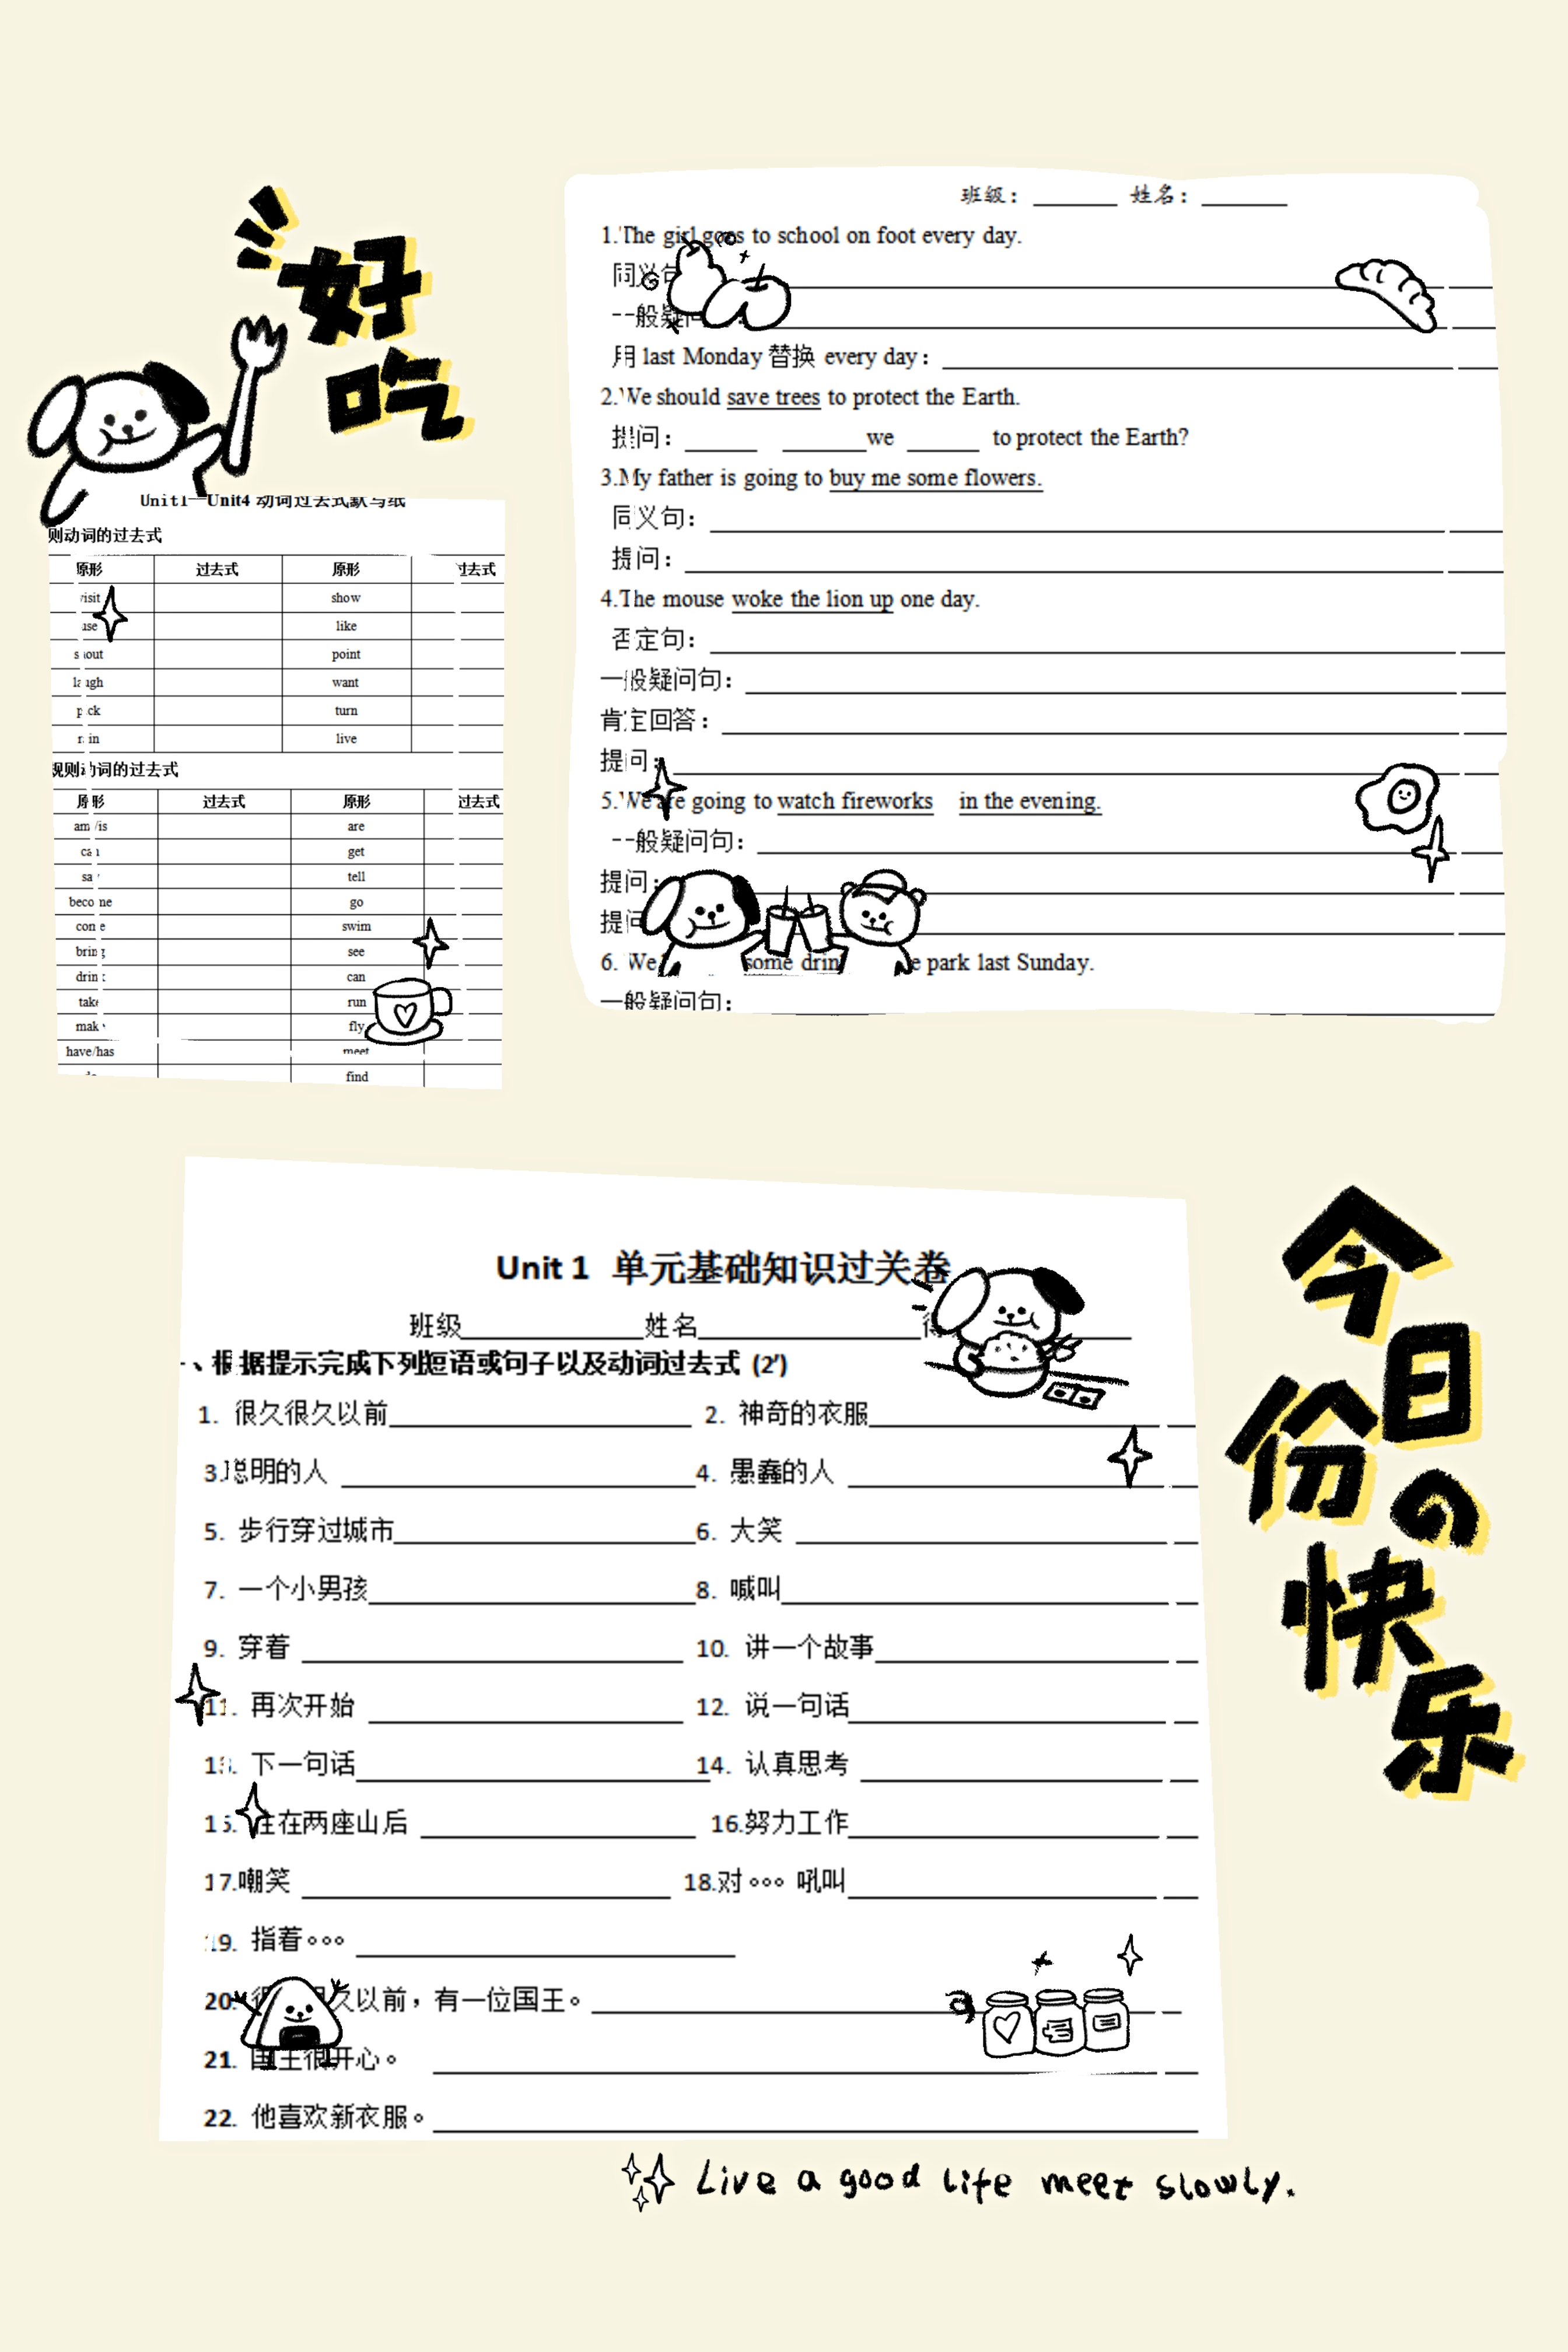 好
吃
班级：______ 姓名：______
1.The girl goes to school on foot every day.
同义句
一般疑问
用 last Monday 替换 every day：
2.We should save trees to protect the Earth.
提问：______ ______we ______ to protect the Earth?
3.My father is going to buy me some flowers.
同义句：
提问：
4.The mouse woke the lion up one day.
否定句：
一般疑问句：
肯定回答：
提问：
5.We are going to watch fireworks in the evening.
一般疑问句：
提问：
提问
6. We some drin e park last Sunday.
一般疑问句：
Unit1—Unit4 动词过去式默写纸
则动词的过去式
原形 过去式 原形 过去式
visit show
use like
shout point
laugh want
pick turn
rain live
规则动词的过去式
原形 过去式 原形 过去式
am/is are
can get
say tell
become go
come swim
bring see
drink can
take run
make fly
have/has meet
do find
Unit 1 单元基础知识过关卷
班级______姓名______得
一、根据提示完成下列短语或句子以及动词过去式 (2')
1. 很久很久以前______ 2. 神奇的衣服______
3.聪明的人 ______4. 愚蠢的人 ______
5. 步行穿过城市______6. 大笑 ______
7. 一个小男孩______8. 喊叫______
9. 穿着 ______ 10. 讲一个故事______
11. 再次开始 ______ 12. 说一句话______
13. 下一句话______14. 认真思考 ______
15. 住在两座山后 ______ 16.努力工作______
17.嘲笑 ______ 18.对。。。 吼叫______
19. 指着。。。 ______
20. 很久很久以前，有一位国王。______
21. 国王很开心。 ______
22. 他喜欢新衣服。______
今日
份の
快乐
Live a good life meet slowly.